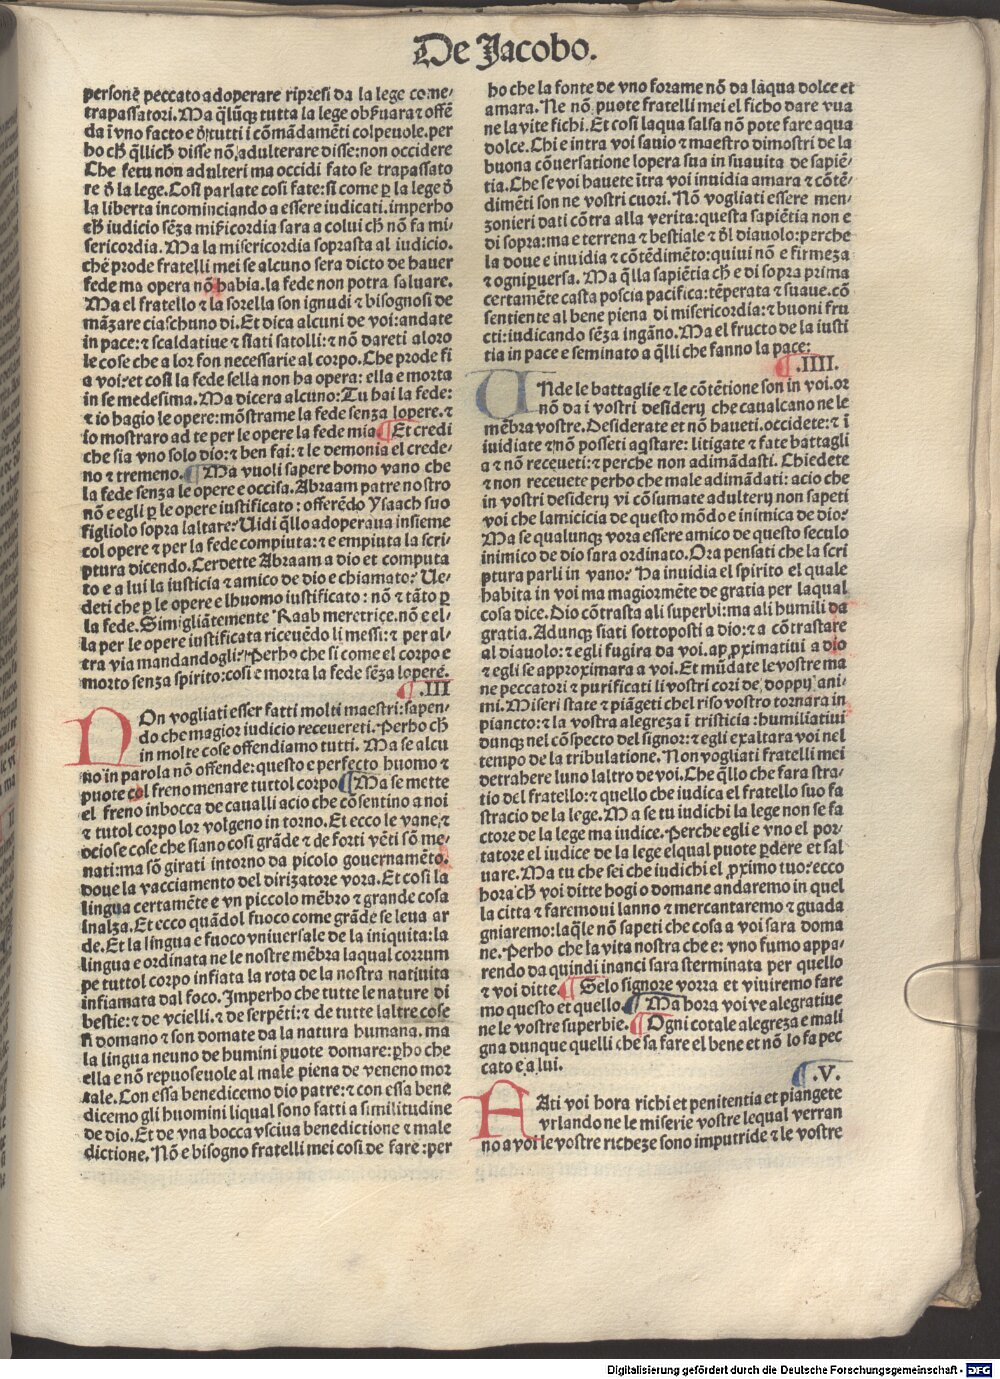 De Jacobo.
personē peccato adoperare ripresi da la lege come/
trapassatori. Ma q̄lūq̨ tutta la lege obs̄uara ⁊ offē
da ī vno facto e d̄ tutti i cōmādamēti colpeuole. per
ho ch̄ q̄llich disse nō adulterare disse: non occidere
Che se tu non adulteri ma occidi fato se trapassato
re d̄ la lege. Cosi parlate cosi fate: si come ꝑ la lege d̄
la liberta incominciando a essere iudicati. imperho
ch̄ iudicio sēza mīs̄ricordia sara a colui ch̄ nō fa mi/
sericordia. Ma la misericordia soprasta al iudicio.
chē prode fratelli mei se alcuno sera dicto de hauer
fede ma opera nō habia. la fede non potra saluare.
Ma el fratello ⁊ la sorella son ignudi ⁊ bisognosi de
māzare ciaschuno di. Et dica alcuni de voi: andate
in pace: ⁊ scaldatiue ⁊ siati satolli: ⁊ nō dareti aloro
le cose che a lor son necessarie al corpo. Che prode fi
a voi: et cosi la fede sella non ha opera: ella e morta
in se medesima. Ma dicera alcuno: Tu hai la fede:
⁊ io hagio le opere: mōstrame la fede senza lopere. ⁊
io mostraro ad te per le opere la fede mia ¶ Et credi
che sia vno solo dio: ⁊ ben fai: ⁊ le demonia el crede/
no ⁊ tremeno. ¶ Ma vuoli sapere homo vano che
la fede senza le opere e occisa. Abraam patre nostro
nō e egli ꝑ le opere iustificato: offerēdo Ysaach suo
figliolo sopra laltare? Uidi q̄llo adoperaua insieme
col opere ⁊ per la fede compiuta: ⁊ e empiuta la scri/
ptura dicendo. Cerdette Abraam a dio et computa
to e a lui la iusticia ⁊ amico de dio e chiamato? Ue/
deti che ꝑ le opere e lhuomo iustificato: nō ⁊ tāto ꝑ
la fede. Simigliātemente Raab meretrice. nō e el/
la per le opere iustificata riceuēdo li messi: ⁊ per al/
tra via mandandogli? Perho che si come el corpo e
morto senza spirito: cosi e morta la fede sēza lopere.
¶ .III
NOn vogliati esser fatti molti maestri: sapen/
do che magior iudicio receuereti. Perho ch̄
in molte cose offendiamo tutti. Ma se alcu
no in parola nō offende: questo e perfecto huomo ⁊
puote col freno menare tuttol corpo ¶ Ma se mette
el freno inbocca de caualli acio che cōsentino a noi
⁊ tutol corpo lor volgeno in torno. Et ecco le vane, ⁊
ociose cose che siano cosi grāde ⁊ de forti vēti sō me/
nati: ma sō girati intorno da picolo gouernamēto.
doue la vacciamento del dirizatore vora. Et cosi la
lingua certamēte e vn piccolo mēbro ⁊ grande cosa
inalza. Et ecco quādol fuoco come grāde se leua ar
de. Et la lingua e fuoco vniuersale de la iniquita: la
lingua e ordinata ne le nostre mēbra laqual corrum
pe tuttol corpo infiata la rota de la nostra natiuita
infiamata dal foco. Imperho che tutte le nature di
bestie: ⁊ de vcielli. ⁊ de serpēti: ⁊ de tutte laltre cose
si domano ⁊ son domate da la natura humana. ma
la lingua neuno de humini puote domare: ꝑho che
ella e nō repuoseuole al male piena de veneno mor
tale. Con essa benedicemo dio patre: ⁊ con essa bene
dicemo gli huomini liqual sono fatti a similitudine
de dio. Et de vna bocca vsciua benedictione ⁊ male
dictione. Nō e bisogno fratelli mei cosi de fare: per
ho che la fonte de vno forame nō da lāqua dolce et
amara. Ne nō puote fratelli mei el ficho dare vua
ne la vite fichi. Et cosi laqua salsa nō pote fare aqua
dolce. Chi e intra voi sauio ⁊ maestro dimostri de la
buona cōuersatione lopera sua in suauita de sapiē/
tia. Che se voi hauete ītra voi inuidia amara ⁊ cōtē/
dimēti son ne vostri cuori. Nō vogliati essere men/
zonieri dati cōtra alla verita: questa sapiētia non e
di sopra: ma e terrena ⁊ bestiale ⁊ d̄l diauolo: perche
la doue e inuidia ⁊ cōtēdimēto: quiui nō e firmeza
⁊ ogniꝑuersa. Ma q̄lla sapiētia ch̄ e di sopra prima
certamēte casta poscia pacifica: tēperata ⁊ suaue. cō
sentiente al bene piena di misericordia: ⁊ buoni fru
cti: iudicando sēza ingāno. Ma el fructo de la iusti
tia in pace e seminato a q̄lli che fanno la pace:
¶ .IIII.
UNde le battaglie ⁊ le cōtētione son in voi. or
nō da i vostri desiderÿ che caualcano ne le
mēbra vostre. Desiderate et nō haueti. occidete: ⁊ ī
iuidiate ⁊ nō posseti aqstare: litigate ⁊ fate battagli
a ⁊ nō receueti: ⁊ perche non adimādasti. Chiedete
⁊ non receuete perho che male adimādati: acio che
in vostri desiderÿ vi cōsumate adulterÿ non sapeti
voi che lamicicia de questo mōdo e inimica de dio?
Ma se qualunq̨ vora essere amico de questo seculo
inimico de dio sara ordinato. Ora pensati che la scri
ptura parli in vano? Ha inuidia el spirito el quale
habita in voi ma magiormēte de gratia per laqual
cosa dice. Dio cōtrasta ali superbi: ma ali humili da
gratia. Adunq̨ siati sottoposti a dio: ⁊ a cōtrastare
al diauolo: ⁊ egli fugira da voi. ap ꝓximatiui a dio
⁊ egli se approximara a voi. Et mūdate le vostre ma
ne peccatori ⁊ purificati li vostri cori de doppÿ ani/
mi. Miseri state ⁊ piāgeti chel riso vostro tornara in
piancto: ⁊ la vostra alegreza ī tristicia: humiliatiui
dunq̨ nel cōspecto del signor: ⁊ egli exaltara voi nel
tempo de la tribulatione. Non vogliati fratelli mei
detrahere luno laltro de voi. Che q̄llo che fara stra/
tio del fratello: ⁊ quello che iudica el fratello suo fa
stracio de la lege. Ma se tu iudichi la lege non se fa
ctore de la lege ma iudice. Perche egli e vno el por/
tatore el iudice de la lege elqual puote ꝑdere et sal
uare. Ma tu che sei che iudichi el ꝓximo tuo? ecco
hora ch̄ voi ditte hogi o domane andaremo in quel
la citta ⁊ faremoui lanno ⁊ mercantaremo ⁊ guada
gniaremo: laq̄le nō sapeti che cosa a voi sara doma
ne. Perho che la vita nostra che e: vno fumo appa/
rendo da quindi inanci sara sterminata per quello
⁊ voi ditte. ¶ Selo signore vorra et viuiremo fare
mo questo et quello ¶ Ma hora voi ve alegratiue
ne le vostre superbie. ¶ Ogni cotale alegreza e mali
gna dunque quelli che sa fare el bene et nō lo fa pec
cato e a lui.
¶ .V.
FAti voi hora richi et penitentia et piangete
vrlando ne le miserie vostre lequal verran
no a voi le vostre richeze sono imputride ⁊ le vostre
Digitalisierung gefördert durch die Deutsche Forschungsgemeinschaft - DFG